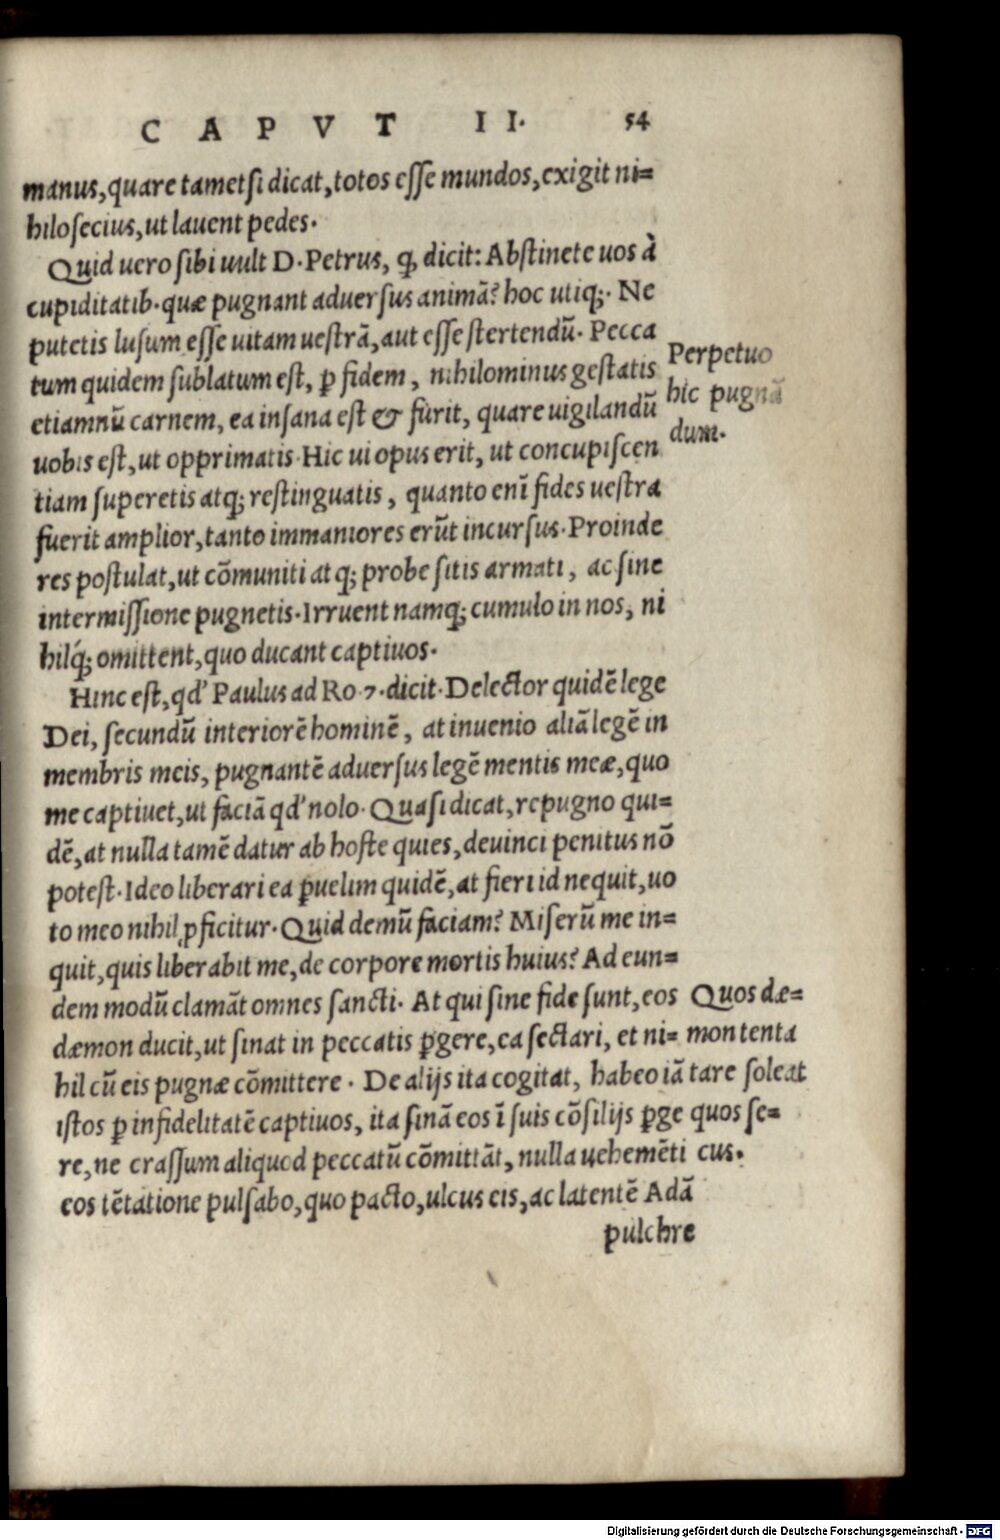 CAPVT II. 54
manus, quare tametsi dicat, totos esse mundos, exigit ni=
hilosecius, ut lauent pedes.
Quid uero sibi uult D. Petrus, q̃ dicit: Abstinete uos à
cupiditatib. quæ pugnant aduersus animã? hoc utiq;. Ne
putetis lusum esse uitam uestrã, aut esse stertendũ. Pecca
tum quidem sublatum est, ꝑ fidem, nihilominus gestatis
etiamnũ carnem, ea insana est & furit, quare uigilandũ
uobis est, ut opprimatis. Hic ui opus erit, ut concupiscen
tiam superetis atq; restinguatis, quanto enĩ fides uestra
fuerit amplior, tanto immaniores erũt incursus. Proinde
res postulat, ut cõmuniti atq; probe sitis armati, ac sine
intermissione pugnetis. Irruent namq; cumulo in nos, ni
hilq́; omittent, quo ducant captiuos.
Hinc est, qd' Paulus ad Ro. 7. dicit. Delector quidẽ lege
Dei, secundũ interiorẽ hominẽ, at inuenio aliã legẽ in
membris meis, pugnantẽ aduersus legẽ mentis meæ, quo
me captiuet, ut faciã qd' nolo. Quasi dicat, repugno qui=
dẽ, at nulla tamẽ datur ab hoste quies, deuinci penitus nõ
potest. Ideo liberari ea ꝑuelim quidẽ, at fieri id nequit, uo
to meo nihil ꝓficitur. Quid demũ faciam? Miserũ me in=
quit, quis liberabit me, de corpore mortis huius? Ad eun=
dem modũ clamãt omnes sancti. At qui sine fide sunt, eos
dæmon ducit, ut sinat in peccatis ꝑgere, ea sectari, et ni=
hil cũ eis pugnæ cõmittere. De alijs ita cogitat, habeo iã
istos ꝑ infidelitatẽ captiuos, ita sinã eos ĩ suis cõsilijs ꝑge
re, ne crassum aliquod peccatũ cõmittãt, nulla uehemẽti
eos tẽtatione pulsabo, quo pacto, ulcus eis, ac latentẽ Adã
pulchre
Perpetuo
hic pugnã
dum.
Quos dæ=
mon tenta
tare soleat
quos se=
cus.
Digitalisierung gefördert durch die Deutsche Forschungsgemeinschaft - DFG